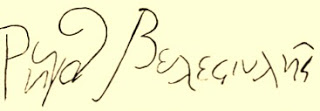 Ρήγας Βελεϛινλῆς